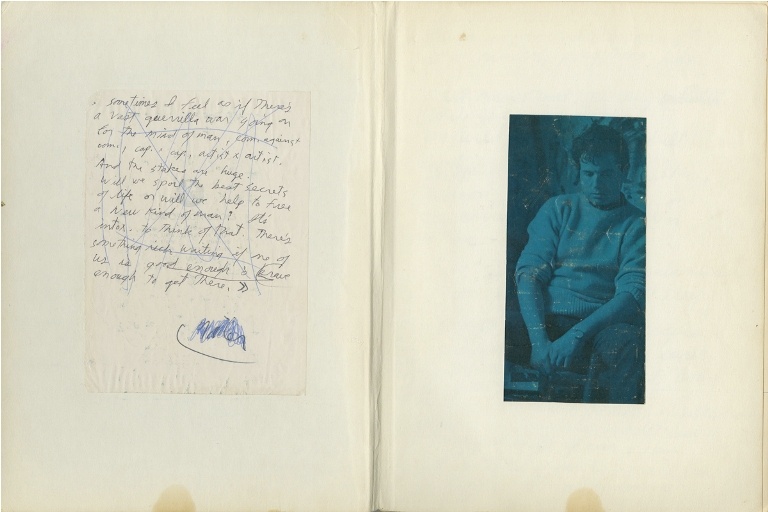 . sometimes I feel as if there's
a vast guerrilla war going on
for the mind of man, com against
com, cap. x cap, artist x artist.
And the stakes are huge.
Will we spoil the best secrets
of life or will we help to free
a new kind of man? It's
inter. to think of that. There's
something rich waiting if one of
us is good enough & brave
enough to get there. »